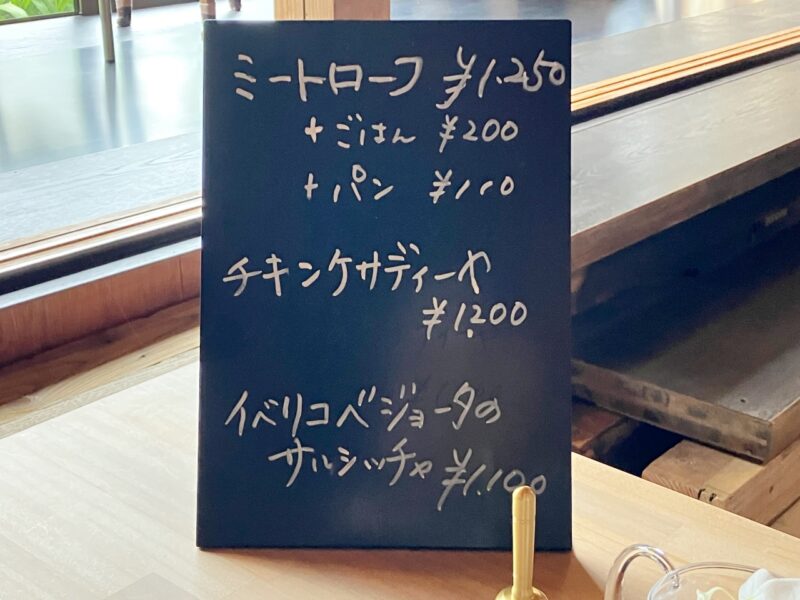 ミートローフ ¥1,250
+ごはん ¥200
+パン ¥110
チキンケサディーヤ
¥1,200
イベリコベジョータの
サルシッチャ ¥1,100